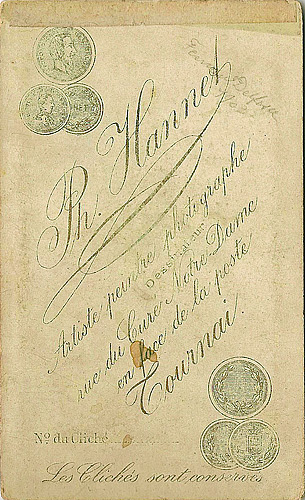 Ph. Hannet
Artiste peintre photographe
Dessinateur
rue du Curé Notre-Dame
en face de la poste
Tournai.
Nº du Cliché
Les Clichés sont conservés